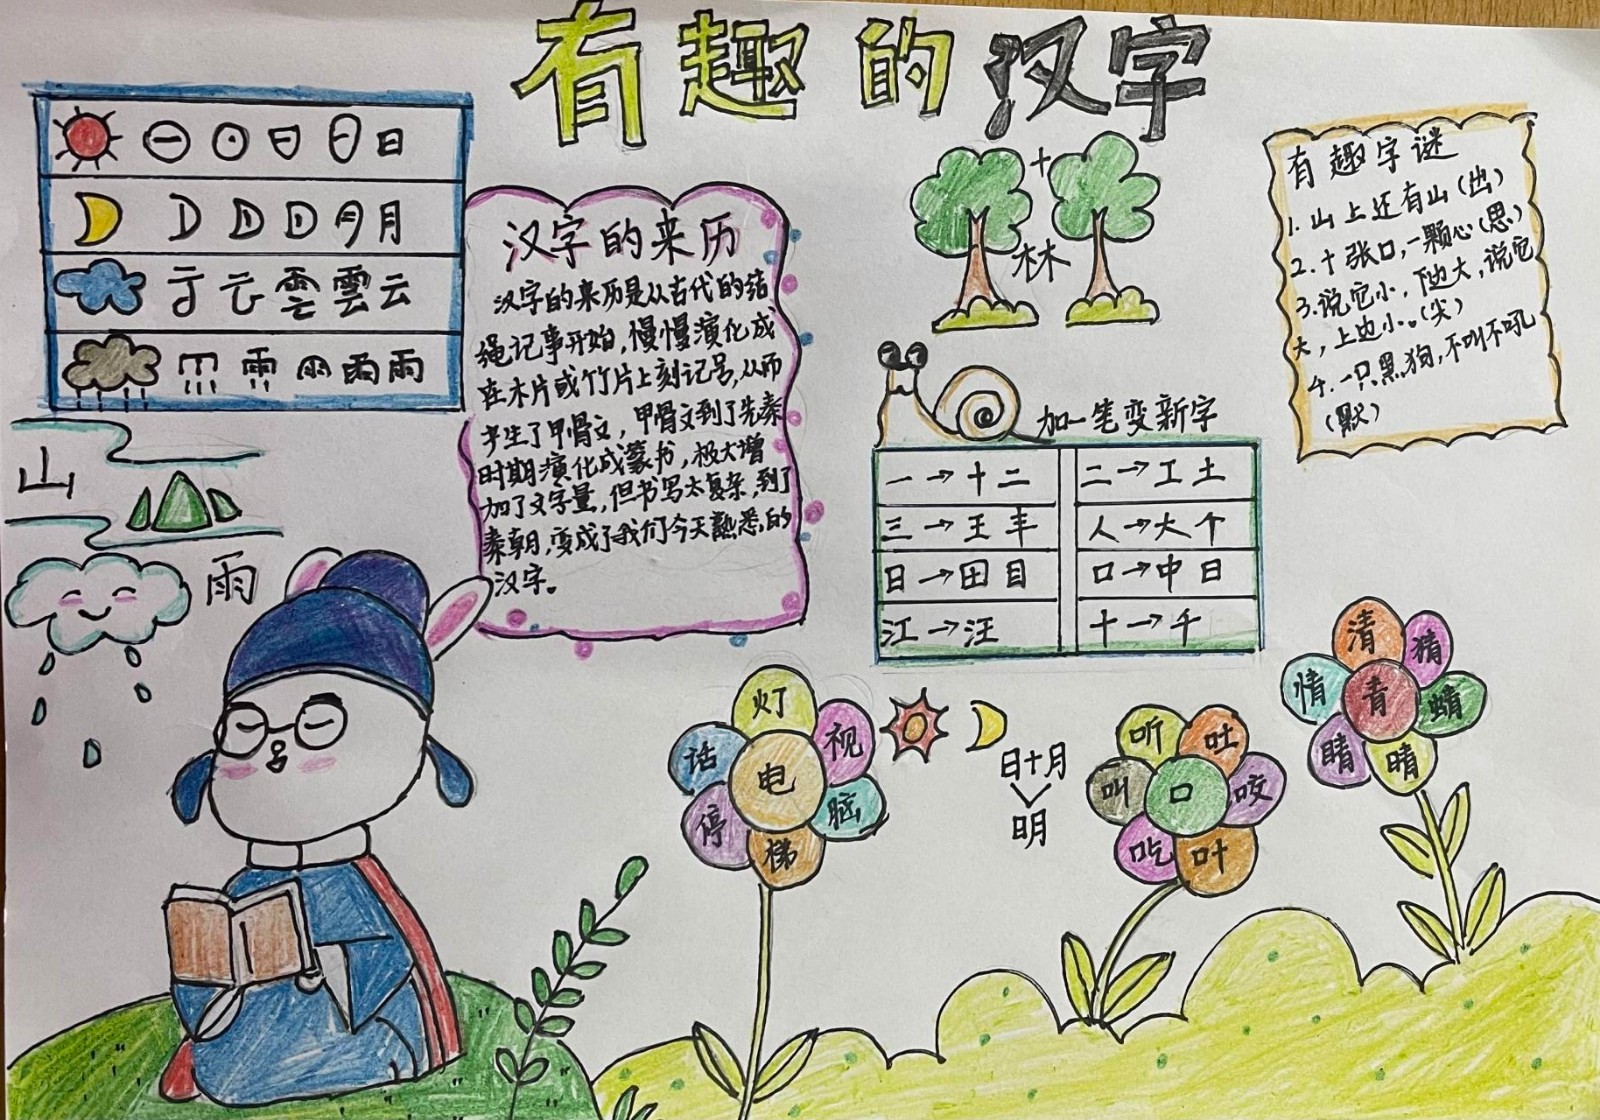 有趣的汉字
日
月
云 雲 云
雨 雨
山
雨
汉字的来历
汉字的来历是从古代的结
绳记事开始,慢慢演化成
在木片或竹片上刻记号,从而
产生了甲骨文,甲骨文到了先秦
时期演化成篆书,极大增
加了文字量,但书写太复杂,到了
秦朝,变成了我们今天熟悉的
汉字。
+
林
加一笔变新字
一→十二 二→工土
三→王丰 人→大个
日→田目 口→中日
江→汪 十→千
有趣字谜
1.山上还有山(出)
2.十张口,一颗心(思)
3.说它小,下边大,说它
大,上边小。(尖)
4.一只黑狗,不叫不吼
(默)
灯
话 视
电
停 脑
梯
日+月
明
听 吐
叫 口 咬
吃 叶
清 精
情 青 蜻
睛 晴